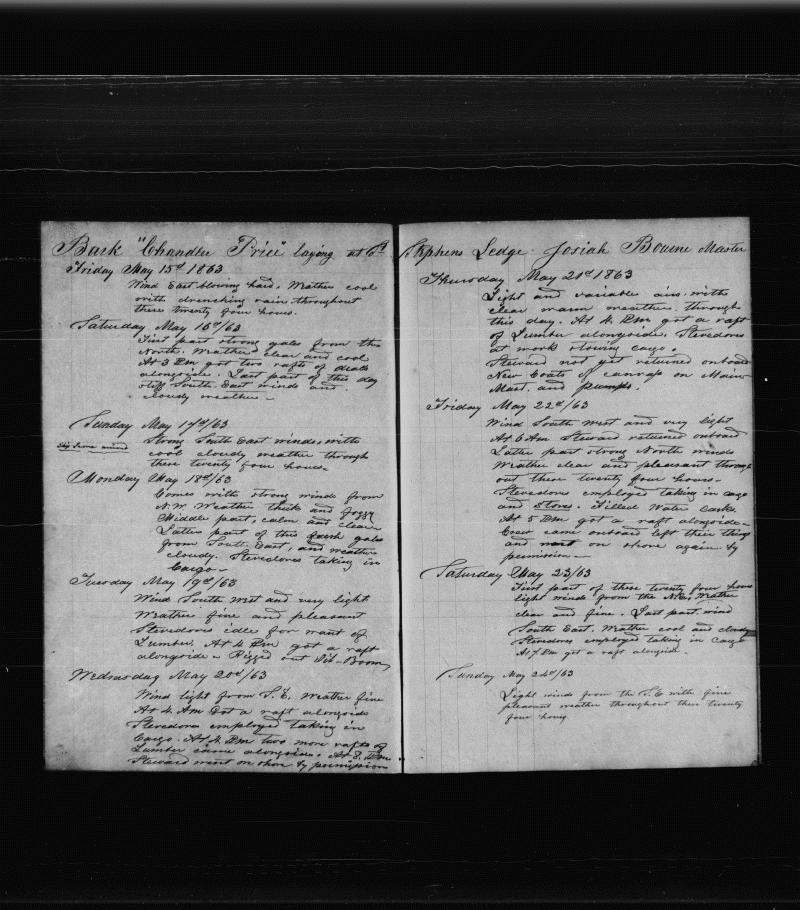 Bark "Chandler Price" laying at St Stephens Ledge. Josiah Bourne Master
Friday May 15d 1863
Wind East blowing hard, Weather cool
with drenching rain throughout
these twenty four hours.
Saturday May 16d/63
First part strong gales from the
North. Weather clear and cool
At 3 Pm got two rafts of deals
alongside. Last part of this day
stiff South East winds and
cloudy weather
Sunday May 17d/63
Strong South East winds, with
cool cloudy weather through
these twenty four hours.
Monday May 18d/63
Comes with strong winds from
N.W. Weather thick and foggy
Middle part, calm and clear
Latter part of this fresh gales
from South East, and weather
cloudy. Stevedores taking in
Cargo
Tuesday May 19d/63
Wind South West and very light
Weather fine and pleasant
Stevedores idle for want of
Lumber. At 4 Pm got a raft
alongside - Rigged out Jib-Boom
Wednesday May 20d/63
Wind light from S.E. Weather fine
At 4 Am Got a raft alongside
Stevedores employed taking in
Cargo. At 4 Pm two more rafts of
Lumber came alongside. At 8 Pm
Steward went on shore by permission
Thursday May 21d 1863
Light and variable airs with
clear warm weather through
this day. At 4 Pm got a raft
of Lumber alongside. Stevedores
at work stowing cargo.
Steward not yet returned onboard
New Coats of canvass on Main
Mast and pumps.
Friday May 22d/63
Wind South West and very light
At 6 Am Steward returned onboard
Latter part strong North winds
Weather clear and pleasant through
out these twenty four hours-
Stevedores employed taking in cargo
and stores. Filled Water casks.
At 5 Pm got a raft alongside-
Crew came onboard left their things
and went on shore again by
permission
Saturday May 23/63
First part of these twenty four hours
light winds from the N.E. Weather
clear and fine. Last part wind
South East. Weather cool and cloudy
Stevedores employed taking in cargo
At 7 Pm got a raft alongside.
Sunday May 24d/63
Light winds from the S.E with fine
pleasant weather throughout these twenty
four hours